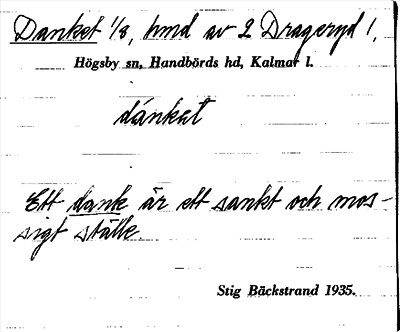 Danket 1/8, hmd av 2 Drageryd 1,
Högsby sn, Handbörds hd, Kalmar l.
dánkat
Ett dank är ett sankt och mos-
sigt ställe
Stig Bäckstrand 1935.